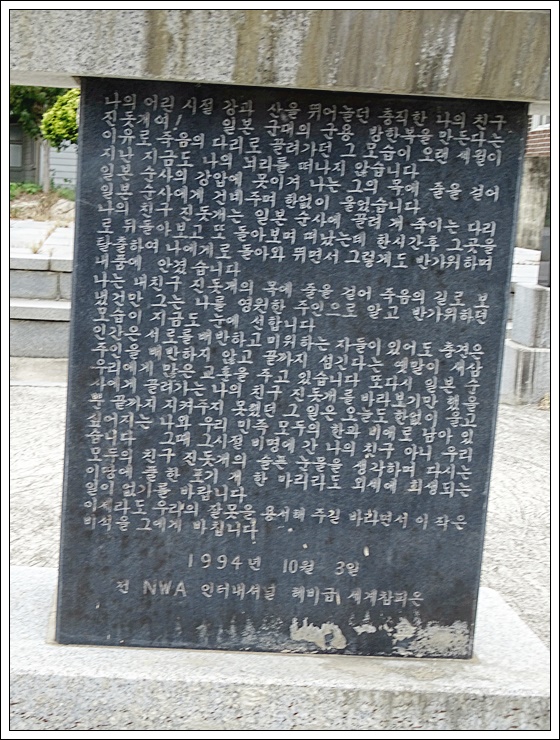 나의 어린 시절 강과 산을 뛰어놀던 충직한 나의 친구
진돗개여! 일본 군대의 군용 방한복을 만든다는
이유로 죽음의 다리로 끌려가던 그 모습이 오랜 세월이
지난 지금도 나의 뇌리를 떠나지 않습니다
일본 순사의 강압에 못이겨 나는 그의 목에 줄을 걸어
일본 순사에게 건네주며 한없이 울었습니다
나의 친구 진돗개는 일본 순사에 끌려 개 죽이는 다리
로 뒤돌아보고 또 돌아보며 떠났는데 한시간후 그곳을
탈출하여 나에게로 돌아와 뛰면서 그렇게도 반가위하며
내품에 안겼습니다
나는 내친구 진돗개의 목에 줄을 걸어 죽음의 길로 보
냈건만 그는 나를 영원한 주인으로 알고 반가위하던
모습이 지금도 눈에 선합니다
인간은 서로를 배반하고 미워하는 자들이 있어도 충견은
주인을 배반하지 않고 끝까지 섬긴다는 옛말이 새삼
우리에게 많은 교훈을 주고 있습니다 또다시 일본 순
사에게 끌려가는 나의 친구 진돗개를 바라보기만 했을
뿐 끝까지 지켜주지 못했던 그 일은 오늘도 한없이 울고
싶어지는 나와 우리 민족 모두의 한과 비애로 남아 있
습니다 그때 그시절 비명에 간 나의 친구 아니 우리
모두의 친구 진돗개의 슬픈 눈물을 생각하며 다시는
이땅에 풀 한 포기 개 한 마리라도 외세에 희생되는
일이 없기를 바랍니다
이제라도 우리의 잘못을 용서해 주길 바라면서 이 작은
비석을 그에게 바칩니다
1994년 10월 3일
전 NWA 인터내셔널 헤비급 세계참피온